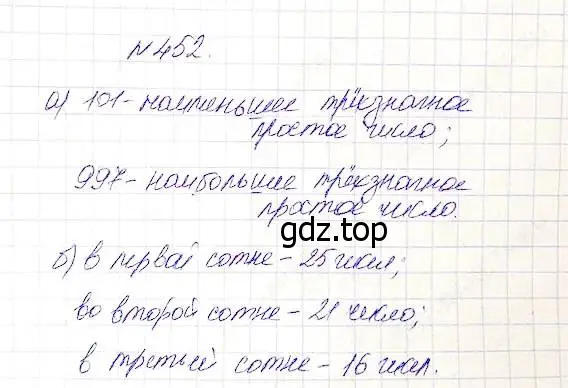 №452.
а) 101-наименьшее трёхзначное
простое число;
997-наибольшее трёхзначное
простое число.
gdz.top
б) в первой сотне-25 чисел;
во второй сотне-21 число;
в третьей сотне-16 чисел.